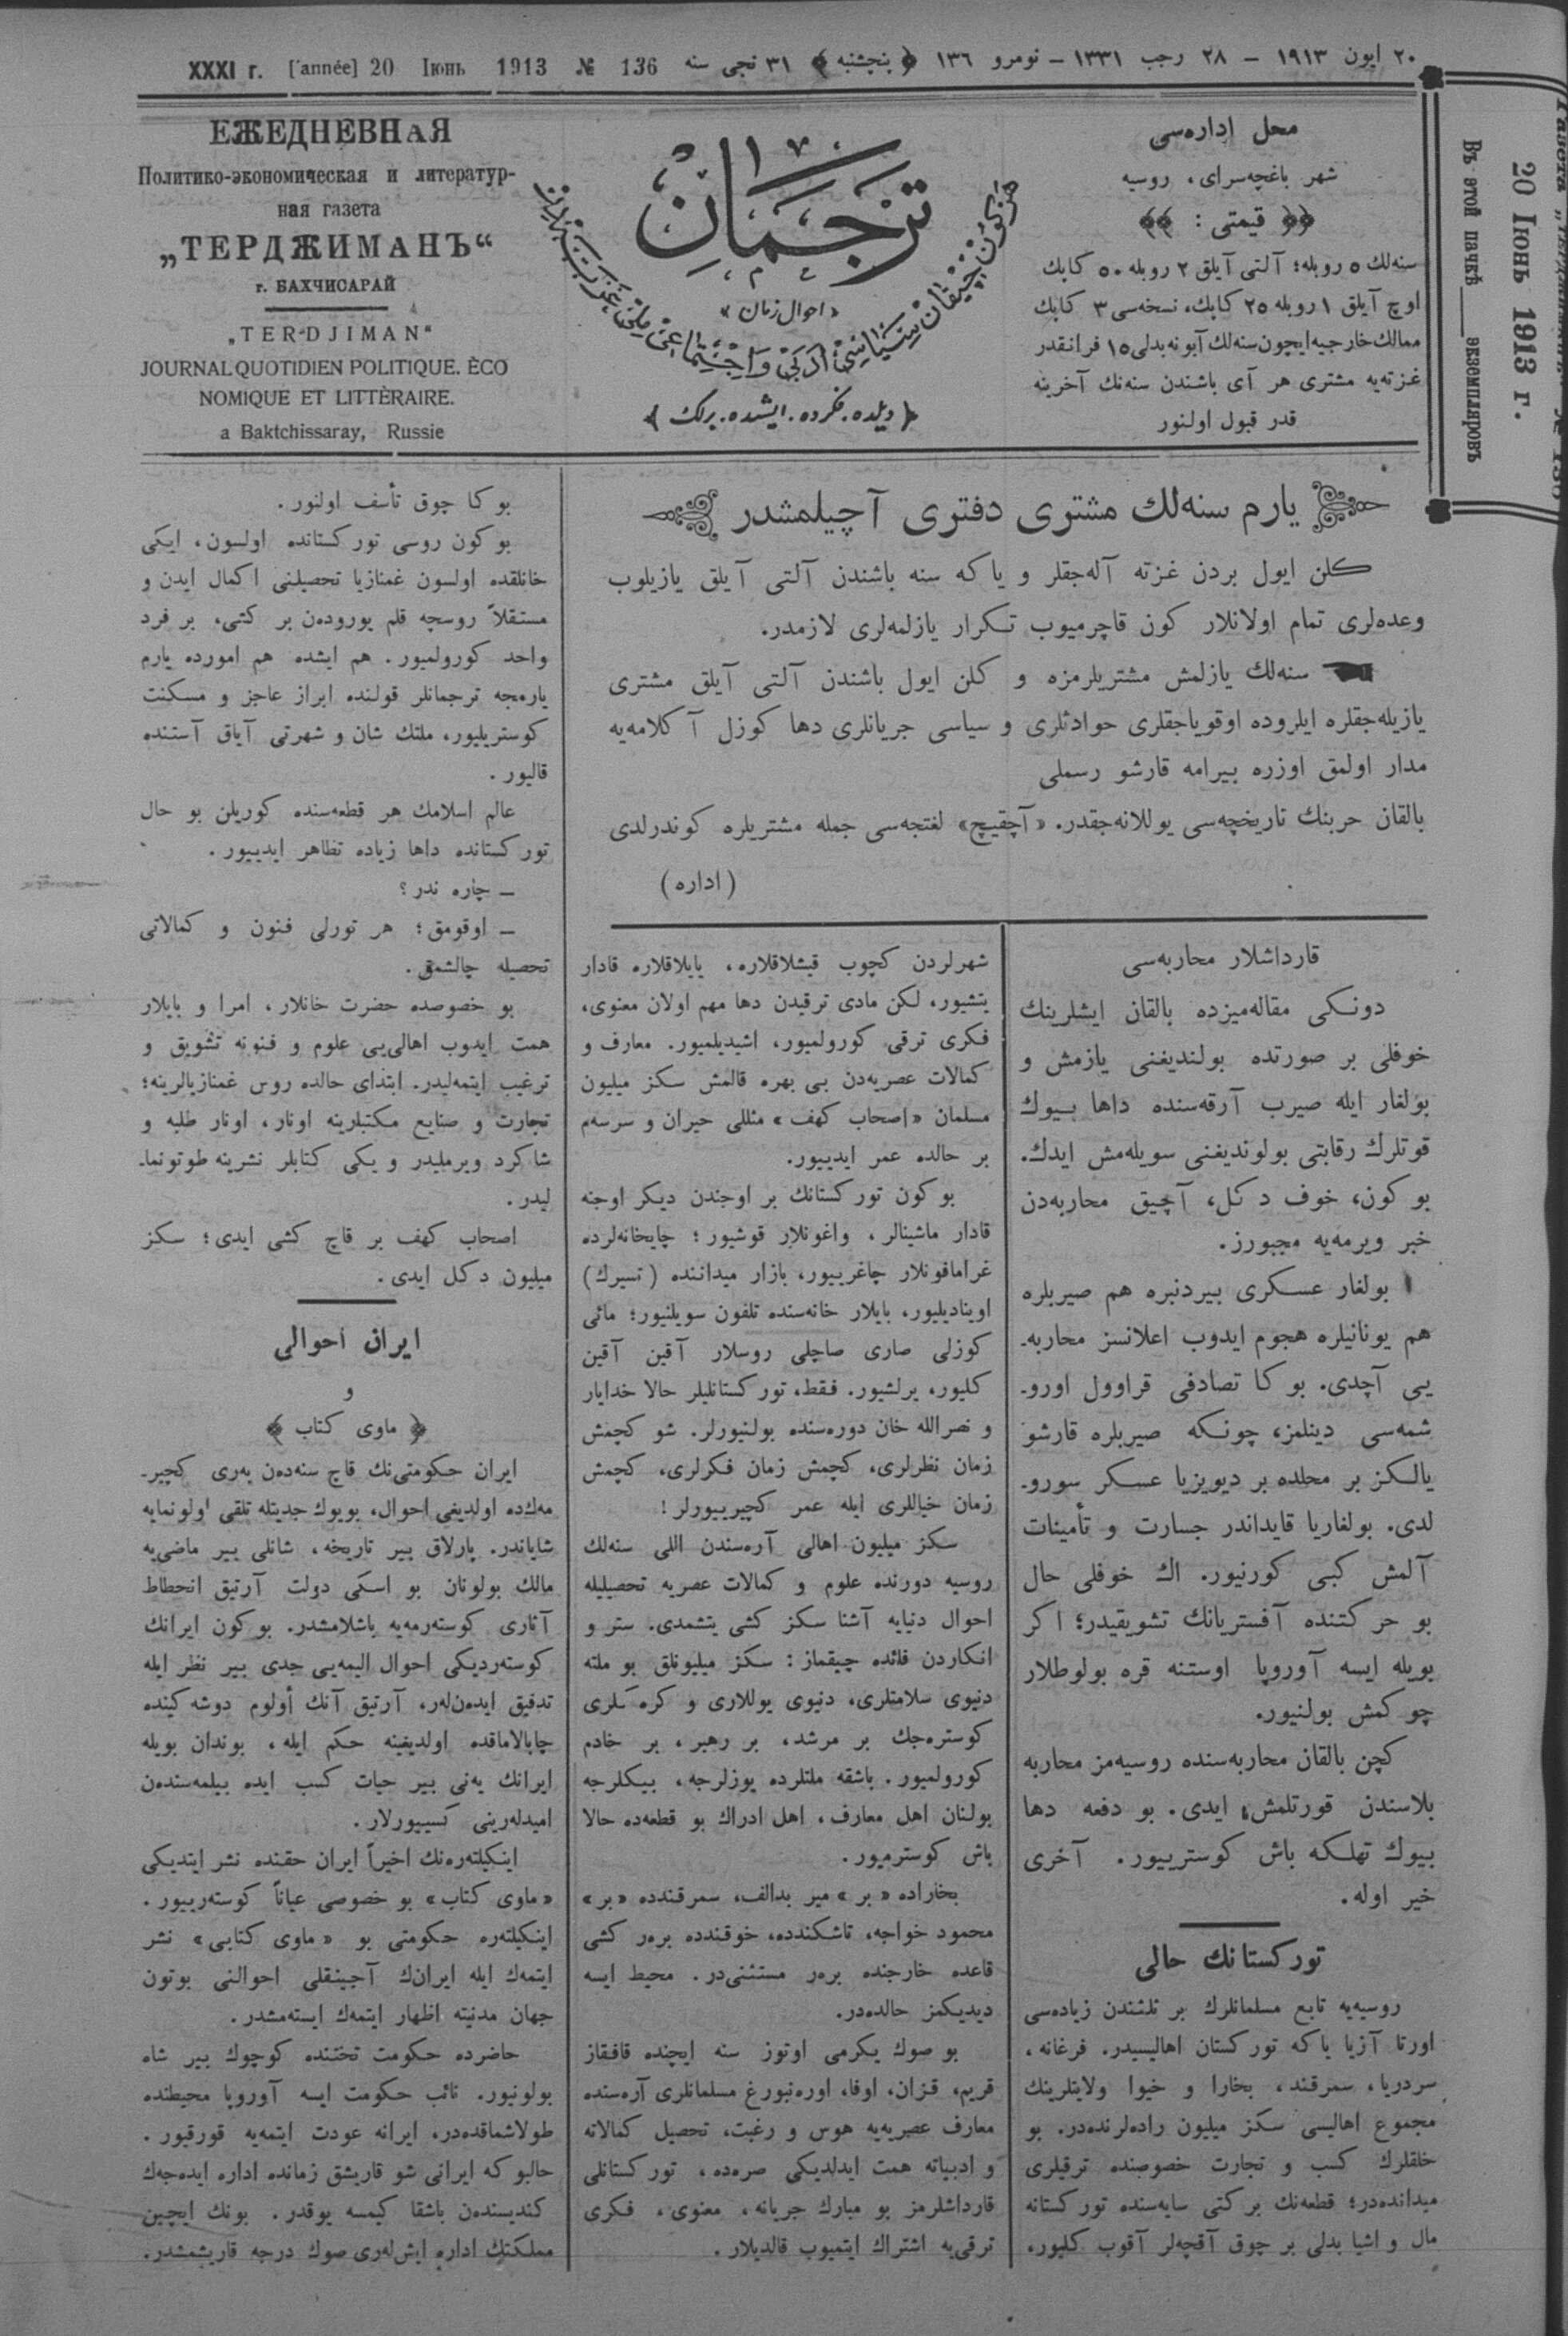 ٢٠ ایون ١٩١٣ – ٢٨ رجب ١٣٣١ – نومرو ١٣٦ ﴿ پنجشنبه ﴾ ٣١ نجی سنه
XXXI г. [année] 20 Iюнь 1913 № 136
محل اداره‌سی
شهر باغچه‌سرای، روسیه
قیمتی :
سنه‌لك ٥ روبله؛ آلتی آیلق ٢ روبله ٥٠ كاپك
اوچ آیلق ١ روبله ٢٥ كاپك، نسخه‌سی ٣ كاپك
ممالك خارجیه ایچون سنه‌لك آبونه بدلی ١٥ فرانقدر
غزته‌یه مشتری هر آی باشندن سنه‌نك آخرینه
قدر قبول اولنور
ترجمان
١٧
« احوال زمان »
هر كون چیقان سیاسی ادبی و اجتماعی ملی غزته
﴿ دیلده . فكرده . ایشده . برلك ﴾
ЕЖЕДНЕВНАЯ
Политико-экономическая и литератур-
ная газета
„ТЕРДЖИМАНЪ“
г. БАХЧИСАРАЙ
„TERDJIMAN“
JOURNAL QUOTIDIEN POLITIQUE. ÈCO
NOMIQUE ET LITTÈRAIRE.
a Baktchissaray, Russie
20 Iюнь 1913 г.
Въ этой пачкѣ ____ экземпляровъ
یارم سنه‌لك مشتری دفتری آچیلمشدر
كلن ایول بردن غزته آله‌جقلر و یا كه سنه باشندن آلتی آیلق یازیلوب
وعده‌لری تمام اولانلار كون قاچرمیوب تكرار یازلمه‌لری لازمدر.
سنه‌لك یازلمش مشتریلرمزه و كلن ایول باشندن آلتی آیلق مشتری
یازیله‌جقلره ایلروده اوقویاجقلری حوادثلری و سیاسی جریانلری دها كوزل آكلامه‌یه
مدار اولمق اوزره بیرامه قارشو رسملی
بالقان حربنك تاریخچه‌سی یوللانه‌جقدر. «آچقیچ» لغتجه‌سی جمله مشتریلره كوندرلدی
(اداره)
قارداشلار محاربه‌سی
دونكی مقاله‌میزده بالقان ایشلرینك
خوفلی بر صورتده بولندیغنی یازمش و
بولغار ایله صیرب آرقه‌سنده داها بیوك
قوتلرك رقابتی بولوندیغنی سویله‌مش ایدك.
بو كون، خوف دكل، آچیق محاربه‌دن
خبر ویرمه‌یه مجبورز.
بولغار عسكری بیردنبره هم صیربلره
هم یونانیلره هجوم ایدوب اعلانسز محاربه‌ـ
یی آچدی. بوكا تصادفی قراوول اوروـ
شمه‌سی دینلمز، چونكه صیربلره قارشو
یالكز بر محلده بر دیویزیا عسكر سوروـ
لدی. بولغاریا قایداندر جسارت و تأمینات
آلمش كبی كورنیور. اك خوفلی حال
بو حركتنده آفستریانك تشویقیدر؛ اكر
بویله ایسه آوروپا اوستنه قره بولوطلار
چوكمش بولنیور.
كچن بالقان محاربه‌سنده روسیه‌مز محاربه
بلاسندن قورتلمش ایدی. بو دفعه دها
بیوك تهلكه باش كوسترییور. آخری
خیر اوله.
توركستانك حالی
روسیه‌یه تابع مسلمانلرك بر ثلثندن زیاده‌سی
اورتا آزیا یا كه توركستان اهالیسیدر. فرغانه،
سردریا، سمرقند، بخارا و خیوا ولایتلرینك
مجموع اهالیسی سكز میلیون راده‌لرنده‌در. بو
خلقلرك كسب و تجارت خصوصنده ترقیلری
میدانده‌در؛ قطعه‌نك بركتی سایه‌سنده توركستانه
مال و اشیا بدلی بر چوق آقچه‌لر آقوب كلیور،
شهرلردن كچوب قیشلاقلاره، یایلاقلاره قادار
یتشیور، لكن مادی ترقیدن دها مهم اولان معنوی،
فكری ترقی كورولمیور، اشیدیلمیور. معارف و
كمالات عصریه‌دن بی بهره قالمش سكز میلیون
مسلمان «اصحاب كهف» مثللی حیران و سرسم
بر حالده عمر ایدییور.
بو كون توركستانك بر اوجندن دیكر اوجنه
قادار ماشینالر، واغونلار قوشیور؛ چایخانه‌لرده
غرامافونلار چاغرییور، بازار میداننده (تسیرك)
اوینادیلیور، بایلار خانه‌سنده تلفون سویلنیور؛ مائی
كوزلی صاری صاچلی روسلار آقین آقین
كلیور، یرلشیور. فقط، توركستانلیلر حالا خدایار
و نصرالله خان دوره‌سنده بولنیورلر. شو كچمش
زمان نظرلری، كچمش زمان فكرلری، كچمش
زمان خیاللری ایله عمر كچیرییورلر!
سكز میلیون اهالی آره‌سندن اللی سنه‌لك
روسیه دورنده علوم و كمالات عصریه تحصیلیله
احوال دنیایه آشنا سكز كشی یتشمدی. ستر و
انكاردن فائده چیقماز: سكز میلیونلق بو ملته
دنیوی سلامتلری، دنیوی یوللاری و كره‌كلری
كوستره‌جك بر مرشد، بر رهبر، بر خادم
كورولمیور. باشقه ملتلرده یوزلرجه، بیكلرجه
بولنان اهل معارف، اهل ادراك بو قطعه‌ده حالا
باش كوسترمیور.
بخاراده «بر» میر بدالف، سمرقندده «بر»
محمود خواجه، تاشكندده، خوقندده برەر كشی
قاعده خارجنده برەر مستثنی‌در. محیط ایسه
دیدیكمز حالده‌در.
بو صوك یكرمی اوتوز سنه ایچنده قافقاز
قریم، قزان، اوفا، اوره‌نبورغ مسلمانلری آره‌سنده
معارف عصریه‌یه هوس و رغبت، تحصیل كمالاته
و ادبیاته همت ایدلدیكی صره‌ده، توركستانلی
قارداشلرمز بو مبارك جریانه، معنوی، فكری
ترقی‌یه اشتراك ایتمیوب قالدیلار.
بوكا چوق تأسف اولنور.
بو كون روسی توركستانده اولسون، ایكی
خانلقده اولسون غمنازیا تحصیلنی اكمال ایدن و
مستقلاً روسجه قلم یوروده‌ن بر كشی، بر فرد
واحد كورولمیور. هم ایشده هم امورده یارم
یارمجه ترجمانلر قولنده ابراز عاجز و مسكنت
كوستریلیور، ملتك شان و شهرتی آیاق آستنده
قالیور.
عالم اسلامك هر قطعه‌سنده كوریلن بو حال
توركستانده داها زیاده تظاهر ایدییور.
– چاره ندر؟
– اوقومق؛ هر تورلی فنون و كمالاتی
تحصیله چالشمق.
بو خصوصده حضرت خانلار، امرا و بایلار
همت ایدوب اهالی‌یی علوم و فنونه تشویق و
ترغیب ایتمه‌لیدر. ابتدای حالده روس غمنازیالرینه؛
تجارت و صنایع مكتبلرینه اونار، اونار طلبه و
شاكرد ویرملیدر و یكی كتابلر نشرینه طوتونماـ
لیدر.
اصحاب كهف بر قاچ كشی ایدی؛ سكز
میلیون دكل ایدی.
ایران احوالی
و
﴿ ماوی كتاب ﴾
ایران حكومتی‌نك قاچ سنه‌دن یه‌ری كچیرـ
مه‌ك‌ده اولدیغی احوال، بویوك جدیتله تلقی اولونمایه
شایاندر. پارلاق بیر تاریخه، شانلی بیر ماضی‌یه
مالك بولونان بو اسكی دولت آرتیق انحطاط
آثاری كوسته‌رمه‌یه باشلامشدر. بو كون ایرانك
كوسته‌ردیكی احوال الیمه‌یی جدی بیر نظر ایله
تدقیق ایده‌ن‌لەر، آرتیق آنك أولوم دوشه‌كینده
چابالاماقده اولدیغینه حكم ایله، بوندان بویله
ایرانك یه‌نی بیر حیات كسب ایده بیلمه‌سنده‌ن
امیدلەرینی كسییورلار.
اینكیلته‌رەنك اخیراً ایران حقنده نشر ایتدیكی
«ماوی كتاب» بو خصوصی عیاناً كوسته‌رییور.
اینكیلته‌ره حكومتی بو «ماوی كتابی» نشر
ایتمه‌ك ایله ایران‌ك آجینقلی احوالنی بوتون
جهان مدنیته اظهار ایتمه‌ك ایسته‌مشدر.
حاضرده حكومت تختنده كوچوك بیر شاه
بولونیور. نائب حكومت ایسه آوروپا محیطنده
طولاشماقده‌در، ایرانه عودت ایتمه‌یه قورقیور.
حالبوكه ایرانی شو قاریشق زمانده اداره ایده‌جه‌ك
كندیسنده‌ن باشقا كیمسه یوقدر. بونك ایچین
مملكتك اداره ایش‌لەری صوك درجه قاریشمشدر.